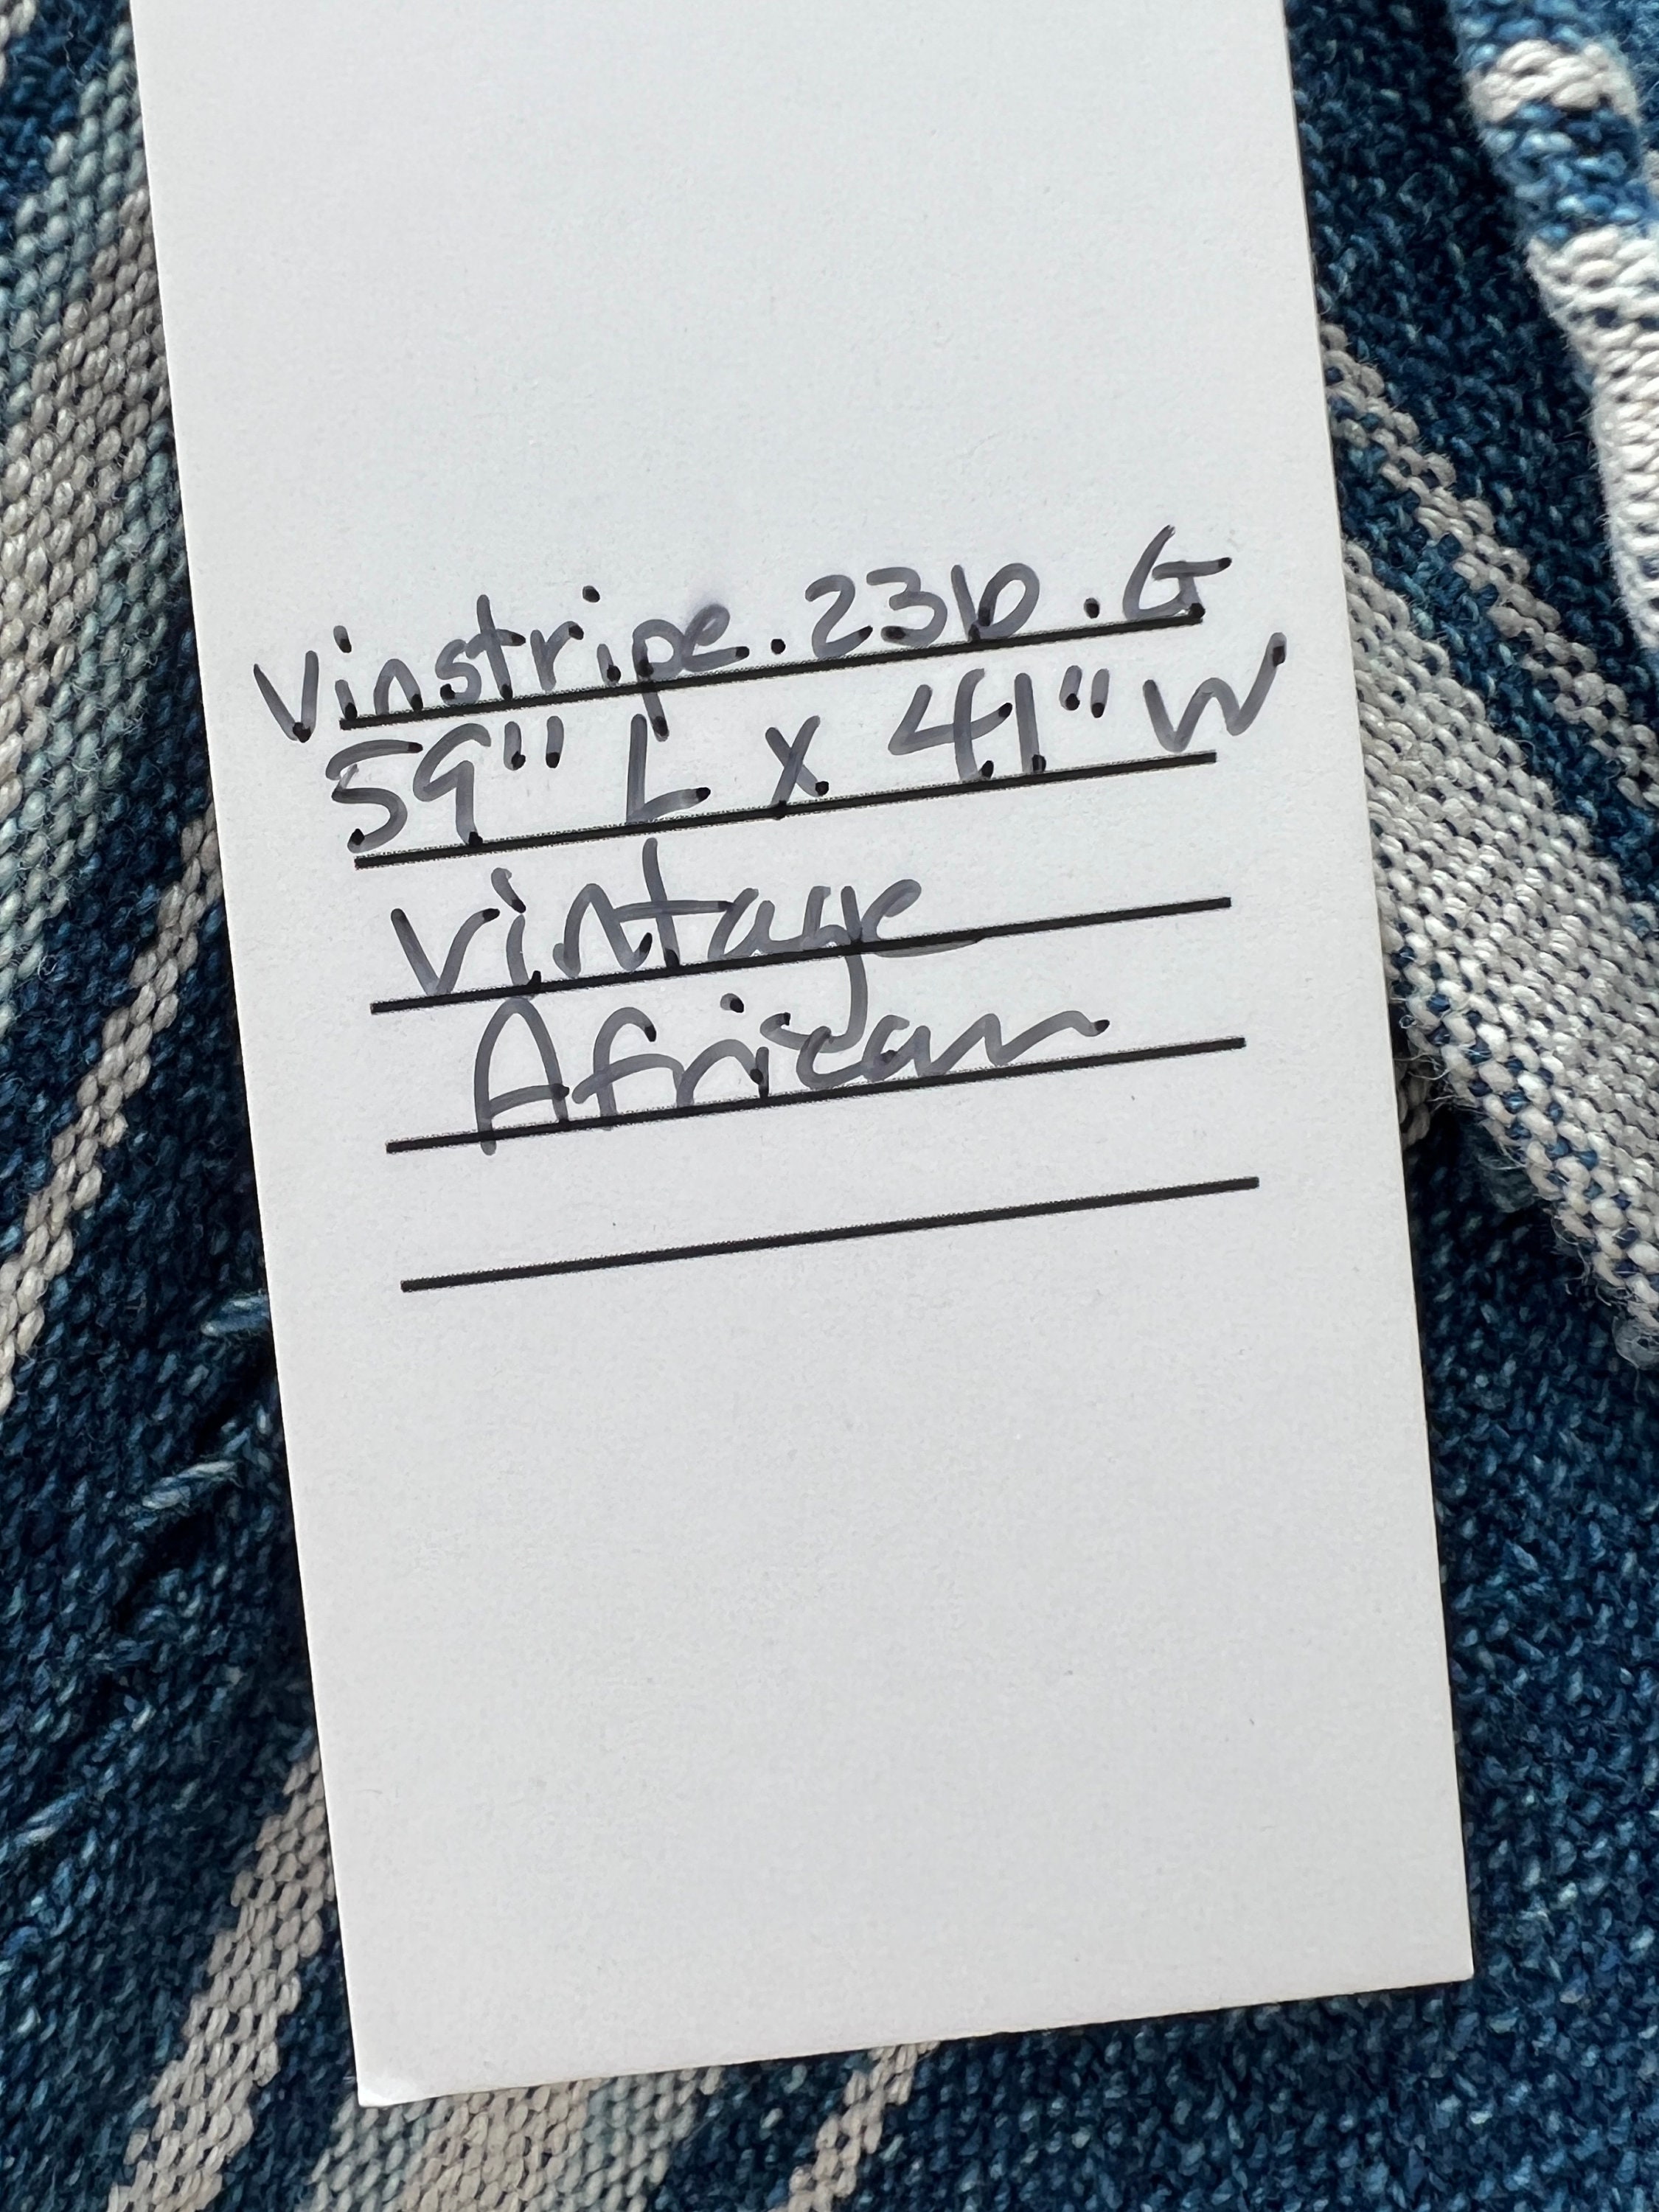 Vinstripe.2310.G
59" L x 41" W
vintage
African